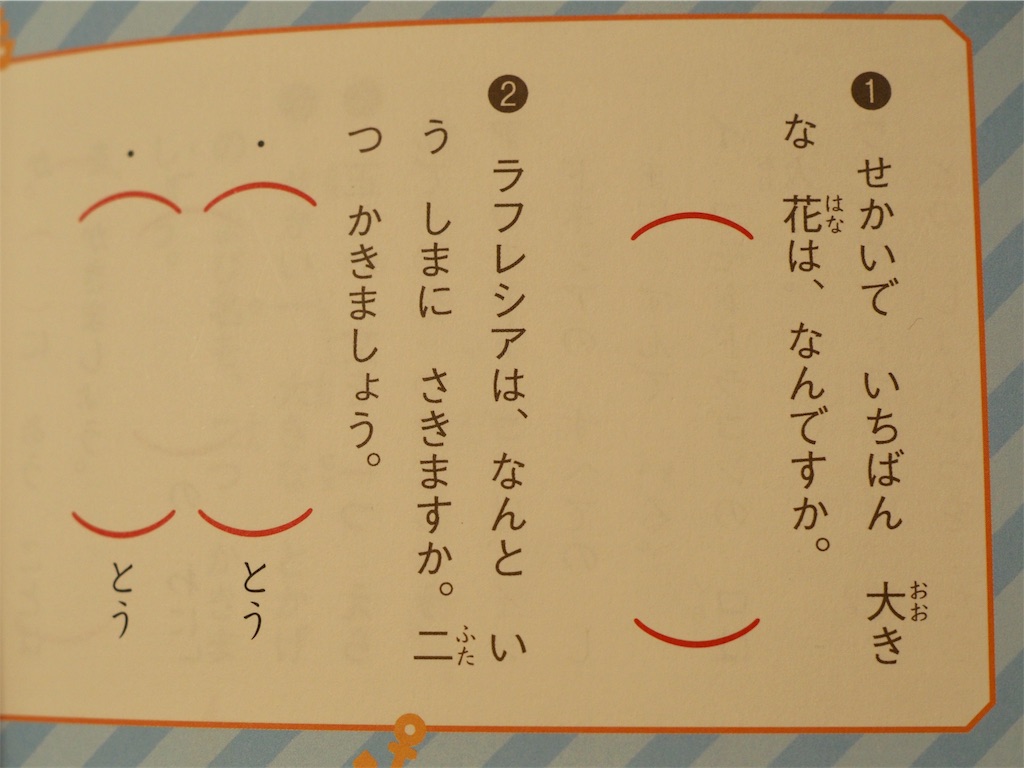 ❶ せかいで いちばん 大おおき
な 花はなは、なんですか。
( )
❷ ラフレシアは、なんと い
う しまに さきますか。二ふた
つ かきましょう。
・( )とう
・( )とう